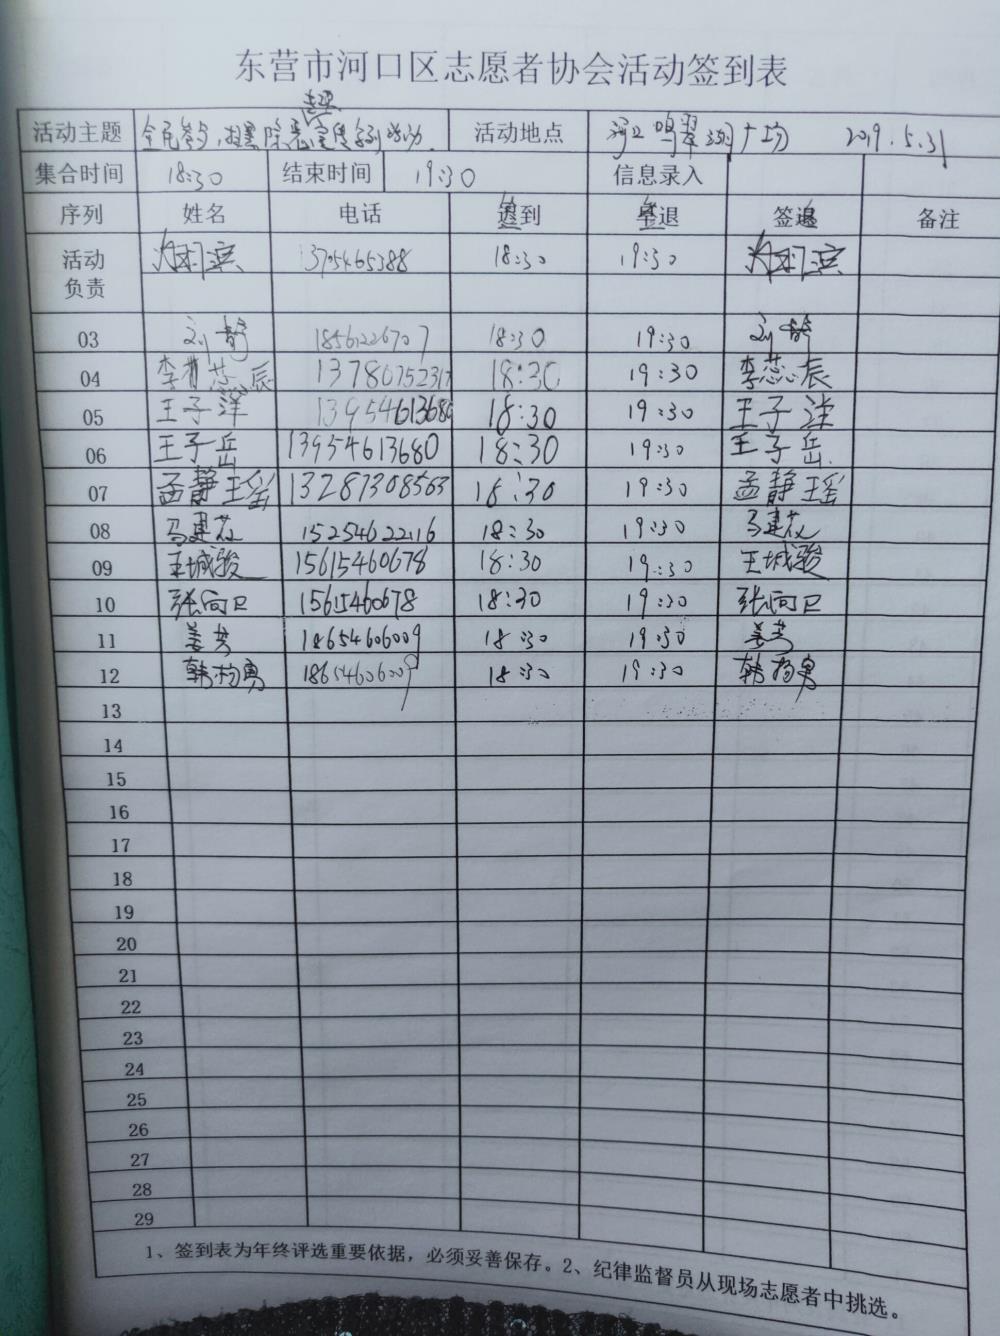 东营市河口区志愿者协会活动签到表
活动主题 全民参与,扫黑除恶宣传系列活动 活动地点 河口鸣翠湖广场 2019.5.31
集合时间 18:30 结束时间 19:30 信息录入
序列 姓名 电话 签到 签退 签退 备注
活动负责 13705465388 18:30 19:30
03 刘静 18561226707 18:30 19:30 刘静
04 李蕊辰 1378075231 18:30 19:30 李蕊辰
05 王子洋 13954613680 18:30 19:30 王子洋
06 王子岳 13954613680 18:30 19:30 王子岳
07 孟静瑶 13287308563 18:30 19:30 孟静瑶
08 马建花 15254622216 18:30 19:30 马建花
09 王城骏 15615460678 18:30 19:30 王城骏
10 张向卫 15615460678 18:30 19:30 张向卫
11 姜芳 18654606009 18:30 19:30 姜芳
12 韩杨勇 18654606009 18:30 19:30 韩杨勇
13
14
15
16
17
18
19
20
21
22
23
24
25
26
27
28
29
1、签到表为年终评选重要依据,必须妥善保存。2、纪律监督员从现场志愿者中挑选。